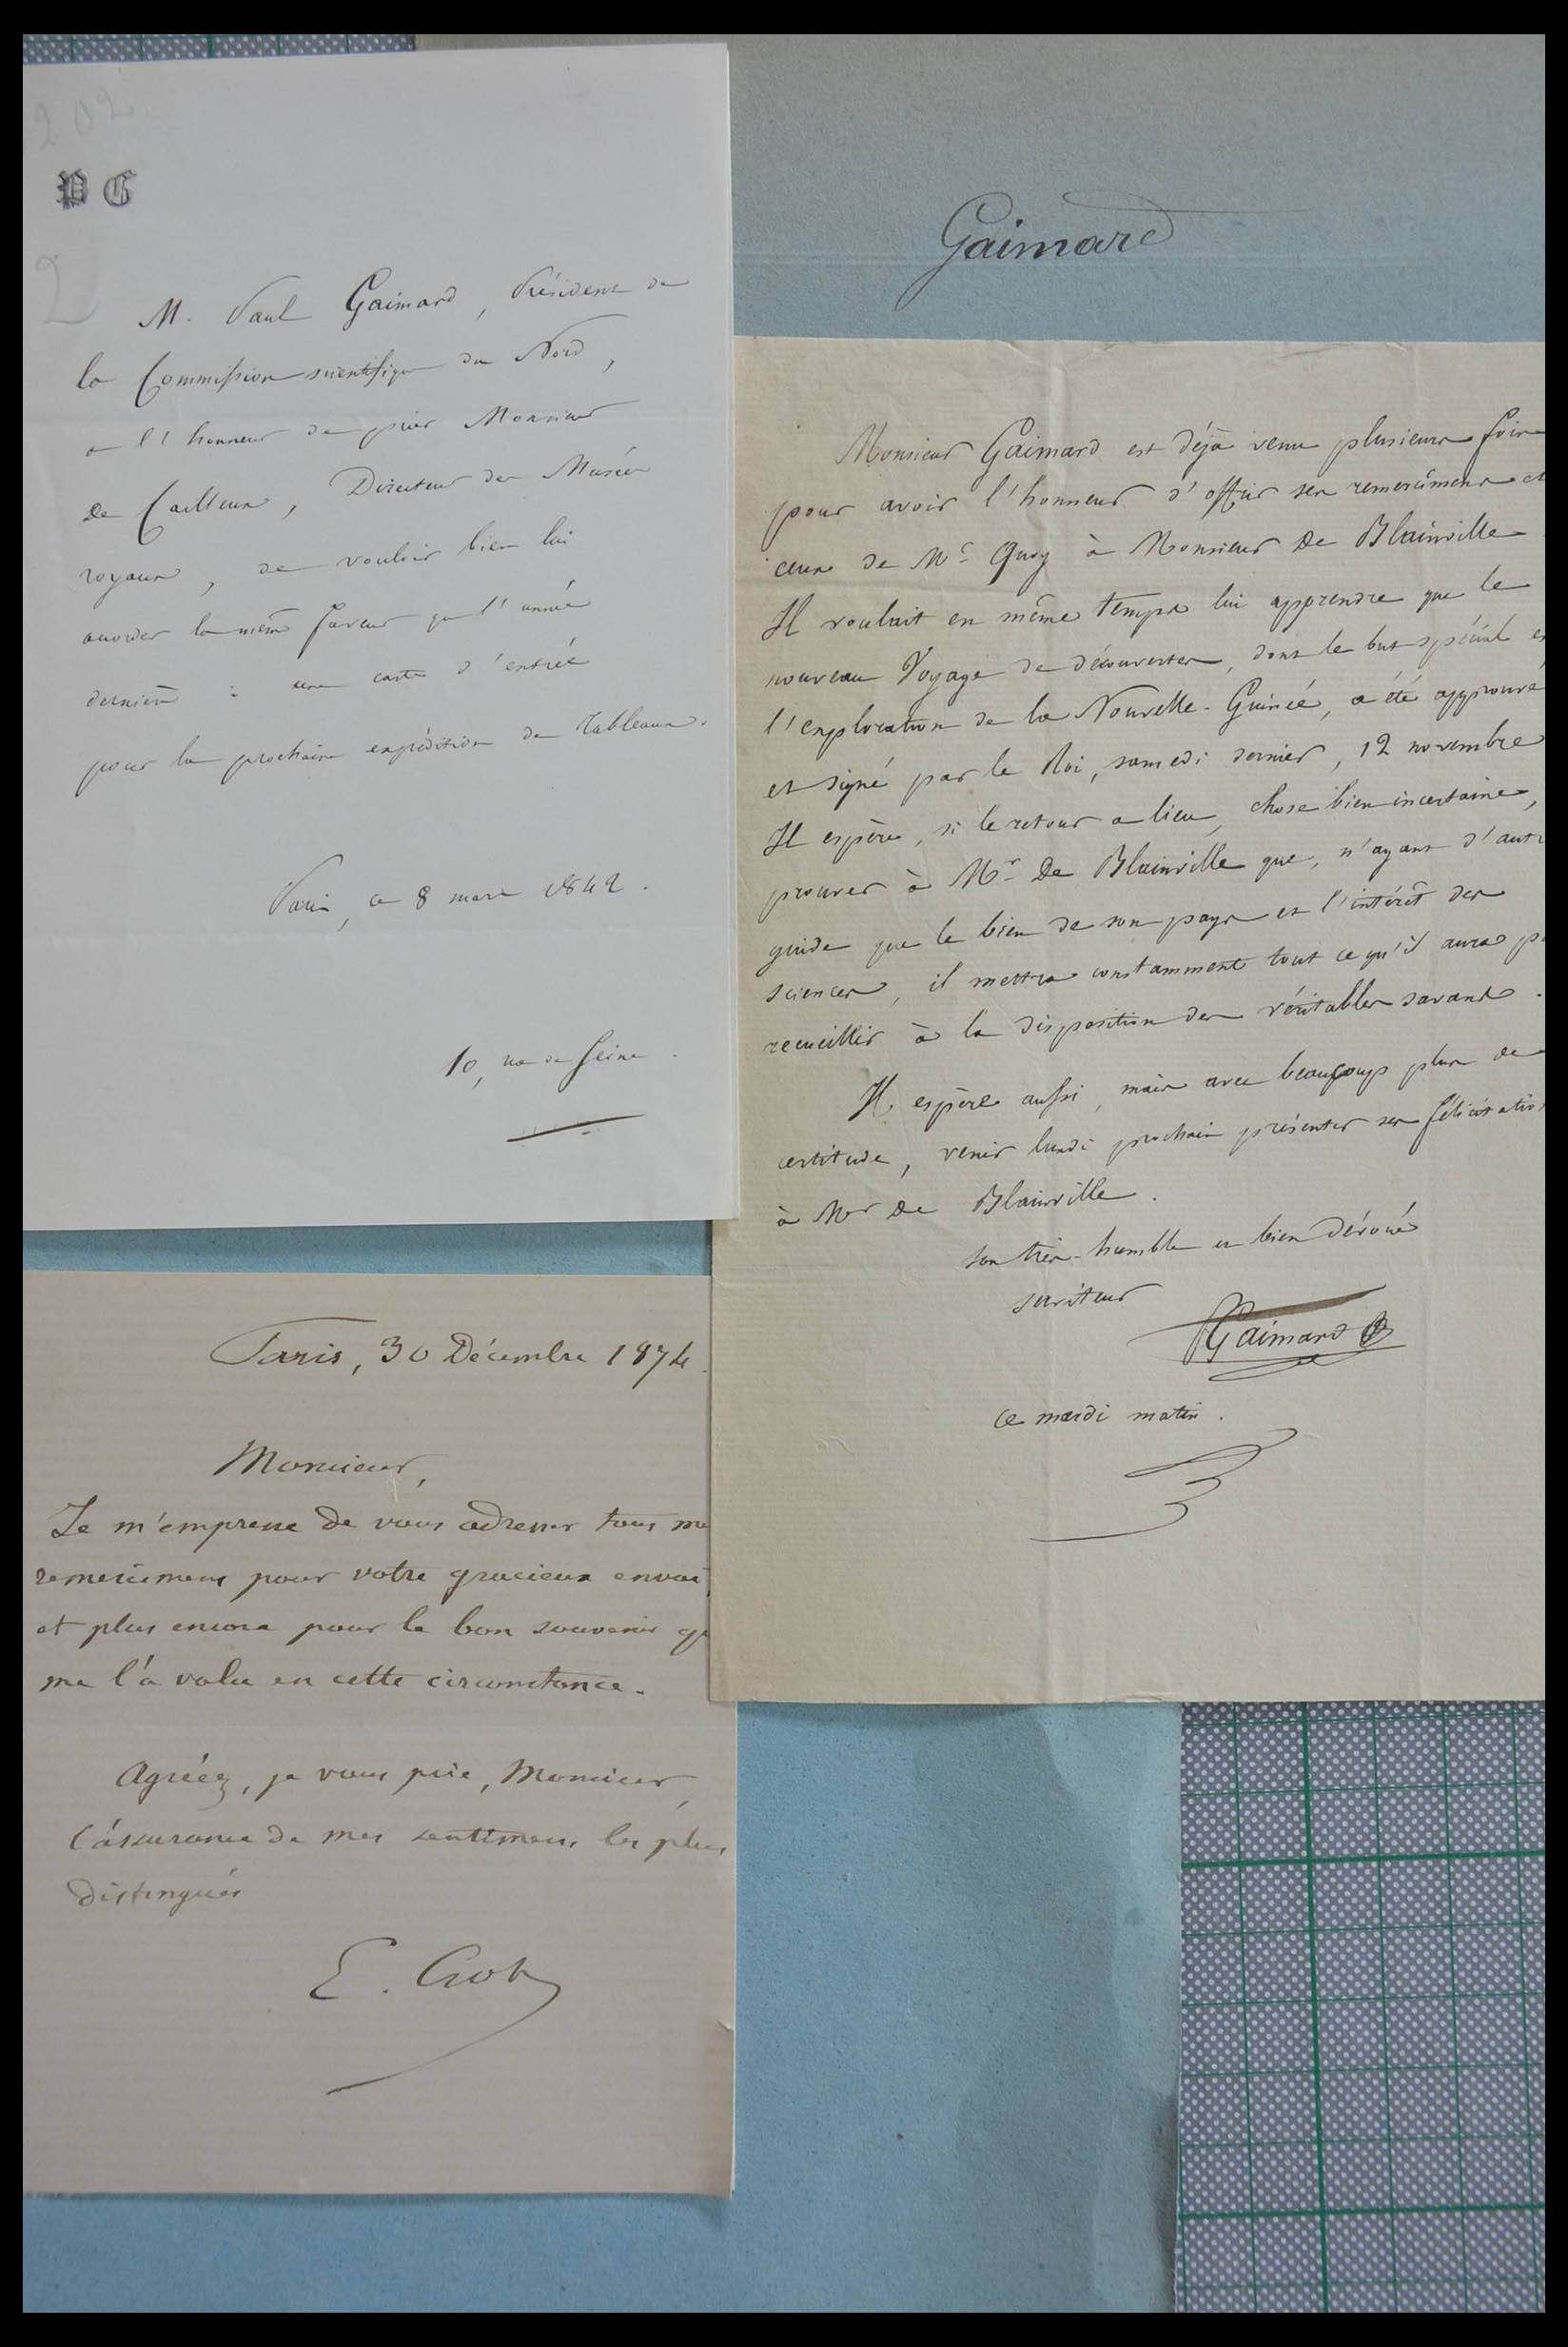 202
PG
2
M. Paul Gaimard, Président de
la Commission scientifique du Nord,
a l'honneur de prier Monsieur
De Cailleux, Directeur des Musées
royaux, de vouloir bien lui
accorder la même faveur que l'année
dernière : une carte d'entrée
pour la prochaine expédition de Tableaux.
Paris, ce 8 mars 1842.
10, rue de Seine.
Gaimard
Monsieur Gaimard est déjà venu plusieurs fois
pour avoir l'honneur d'offrir ses remercîmens et
ceux de Mr Quoy à Monsieur De Blainville
Il voulait en même temps lui apprendre que le
nouveau Voyage de découvertes, dont le but spécial es
l'exploration de la Nouvelle-Guinée, a été approuvé
et signé par le Roi, samedi dernier, 12 novembre
Il espère, si le retour a lieu, chose bien incertaine,
prouver à Mr De Blainville que, n'ayant d'autr
guide que le bien de son pays et l'intérêt des
sciences, il mettra constamment tout ce qu'il aura p
recueillir à la disposition des véritables savants.
Il espère aussi, mais avec beaucoup plus de
certitude, venir lundi prochain présenter ses félicitation
à Mr De Blainville.
son très-humble et bien dévoué
serviteur
Gaimard
ce mardi matin.
Paris, 30 Décembre 1874.
Monsieur,
Je m'empresse de vous adresser tous me
remerciemens pour votre gracieux envoi,
et plus encore pour le bon souvenir qu
me l'a valu en cette circonstance.
Agréez, je vous prie, Monsieur,
l'assurance de mes sentimens les plus
distingués
E.